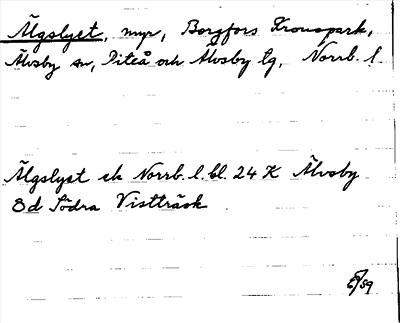 Älgslyet, myr, Borgfors Kronopark,
Älvsby sn, Piteå och Älvsby lg, Norrb. l.
Älgslyet ek Norrb. l. bl. 24 K Älvsby
8d Södra Vistträsk
/59